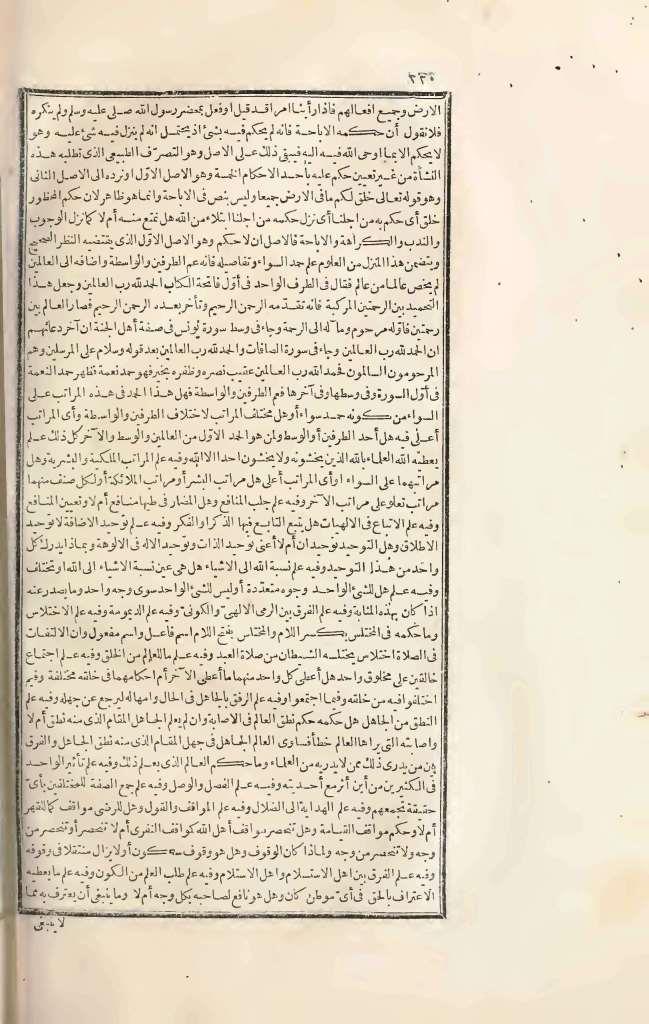 ٢٢٥
الارض وجميع افعالهم فاذا رأينا امرا قد قيل أو فعل بمحضر رسول الله صلى عليه وسلم ولم ينكره
فلا نقول أن حكمه الاباحة فانه لم يحكم فيه بشئ اذ يحتمل انه لم ينزل فيه شئ عليه وهو
لا يحكم الا بما اوحى الله فيه اليه فيبقى ذلك على الاصل وهو التصرف الطبيعى الذى تطلبه هذه
النشأة من غير تعيين حكم عليه بأحد الاحكام الخمسة وهو الاصل الاول او نرده الى الاصل الثانى
وهو قوله تعالى خلق لكم ما فى الارض جميعا وليس بنص فى الاباحة وانما هو ظاهر لان حكم المحظور
خلق أى حكم به من اجلنا أى نزل حكمه من اجلنا ابتلاء من الله هل نمتنع منه أم لا كما نزل الوجوب
والندب والكراهة والاباحة فالاصل ان لا حكم وهو الاصل الاول الذى يقتضيه النظر الصحيح
ويتضمن هذا المنزل من العلوم علم حمد السواء وتفاصيله فانه عم الطرفين والواسطة واضافه الى العالمين
لم يخص عالما من عالم فقال فى الطرف الواحد فى أول فاتحة الكتاب الحمد لله رب العالمين وجعل هذا
التحميد بين الرحمتين المركبة فانه تقدمه الرحمن الرحيم وتأخر بعده الرحمن الرحيم فصار العالم بين
رحمتين فاوله مرحوم ومآله الى الرحمة وجاء فى وسط سورة يونس فى صفة أهل الجنة ان آخر دعائهم
ان الحمد لله رب العالمين وجاء فى سورة الصافات والحمد لله رب العالمين بعد قوله وسلام على المرسلين وهم
المرحومون السالمون فحمد الله رب العالمين عقيب نصره وظفره بخير فهو حمد نعمة فظهر حمد النعمة
فى أول السورة وفى وسطها وفى آخرها فعم الطرفين والواسطة فهل هذا الحمد فى هذه المراتب على
السواء من كونه حمد سواء أو هل مختلف المراتب لاختلاف الطرفين والواسطة وأى المراتب
أعلى فيه هل أحد الطرفين أو الوسط ولمن هو الحمد الاول من العالمين والوسط والآخر كل ذلك علم
يعطيه الله العلماء بالله الذين يخشونه ولا يخشون احدا الا الله وفيه علم المراتب الملكية والبشرية وهل
مراتبهما على السواء او أى المراتب أعلى هل مراتب البشر أو مراتب الملائكة أو لكل صنف منهما
مراتب تعلو على مراتب الآخر وفيه علم جلب المنافع وهل المضار فى طيها منافع أم لا وتعيين المنافع
وفيه علم الاتباع فى الالهيات هل يتبع التابع فيها الذكر او الفكر وفيه علم توحيد الاضافة لا توحيد
الاطلاق وهل التوحيد توحيدان أم لا أعنى توحيد الذات وتوحيد الاله فى الالوهة وبماذا يدرك كل
واحد من هذا التوحيد وفيه علم نسبة الله الى الاشياء هل هى عين نسبة الاشياء الى الله او تختلف
وفيه علم هل للشئ الواحد وجوه متعددة أو ليس للشئ الواحد سوى وجه واحد وما يصدر عنه
اذا كان بهذه المثابة وفيه علم الفرق بين الرمى الالهى والكونى وفيه علم الديمومة وفيه علم الاختلاس
وما حكمه فى المختلس بكسر اللام والمختلس بفتح اللام اسم فاعل واسم مفعول وان الالتفات
فى الصلاة اختلاس يختلسه الشيطان من صلاة العبد وفيه علم ما للعالم من الخلق وفيه علم اجتماع
خالقين على مخلوق واحد هل أعطى كل واحد منهما ما أعطى الآخر أم احكامهما فى خلقه مختلفة وفيم
اختلفوا فيه من خلقته وفيما اجتمعوا وفيه علم الرفق بالجاهل فى الحال وامهاله ليرجع عن جهله وفيه علم
النطق من الجاهل هل حكمه حكم نطق العالم فى الاصابة وان لم يعلم الجاهل المقام الذى منه نطق أم لا
واصابته التى يراها العالم خطأ فساوى العالم الجاهل فى جهل المقام الذى منه نطق الجاهل والفرق
بين من يدرى ذلك ممن لا يدريه من العلماء وما حكم العالم الذى يعلم ذلك وفيه علم تأثير الواحد
فى الكثيرين من أين أثر مع أحديته وفيه علم الفصل والوصل وفيه علم جمع الصفة للمختلفين بأى
حقيقة تجمعهم وفيه علم الهداية الى الضلال وفيه علم المواقف والقول وهل للرضى مواقف كما للقهر
أم لا وحكم مواقف القيامة وهل تنحصر مواقف أهل الله كمواقف النفرى أم لا تنحصر أو تنحصر من
وجه ولا تنحصر من وجه ولماذا كان الوقوف وهل هو وقوف سكون أو لا يزال متنقلا فى وقوفه
وفيه علم الفرق بين اهل الاستسلام واهل الاستلام وفيه علم طلب العلم من الكون وفيه علم ما يعطيه
الاعتراف بالحق فى أى موطن كان وهل هو نافع لصاحبه بكل وجه أم لا وما ينبغى أن يعترف به مما
لا ينبغى